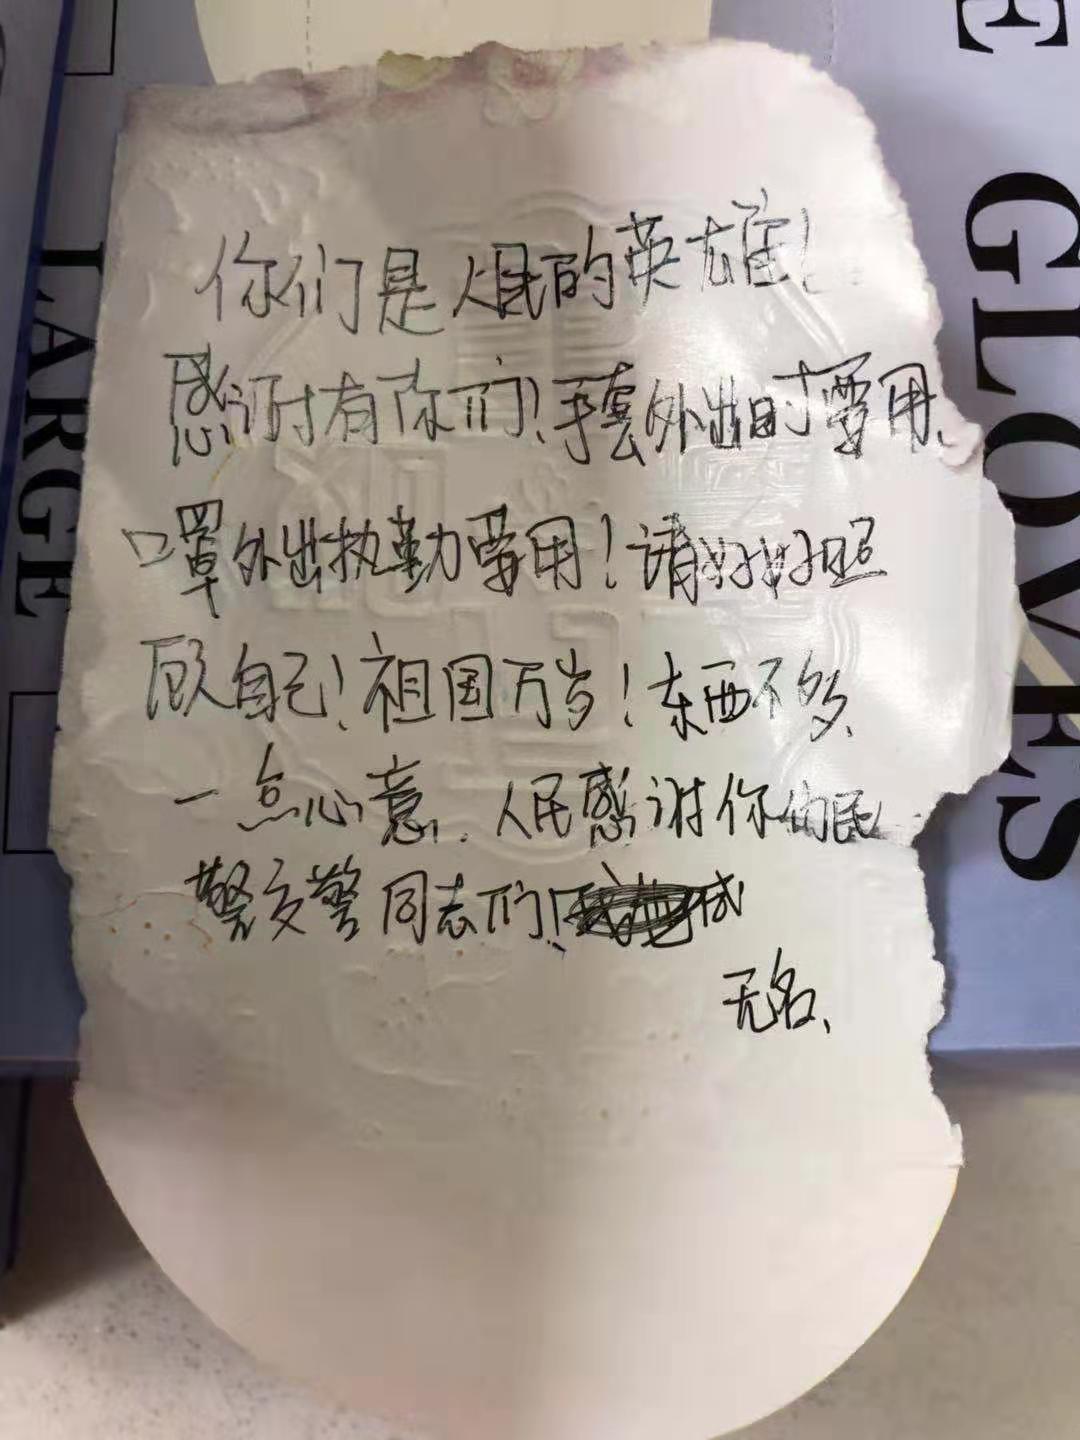 你们是人民的英雄！
感谢有你们！手套外出时要用、
口罩外出执勤要用！请好好照
顾自己！祖国万岁！东西不多、
一点心意. 人民感谢你们民
警交警同志们！
无名、
LARGE
GLOVES